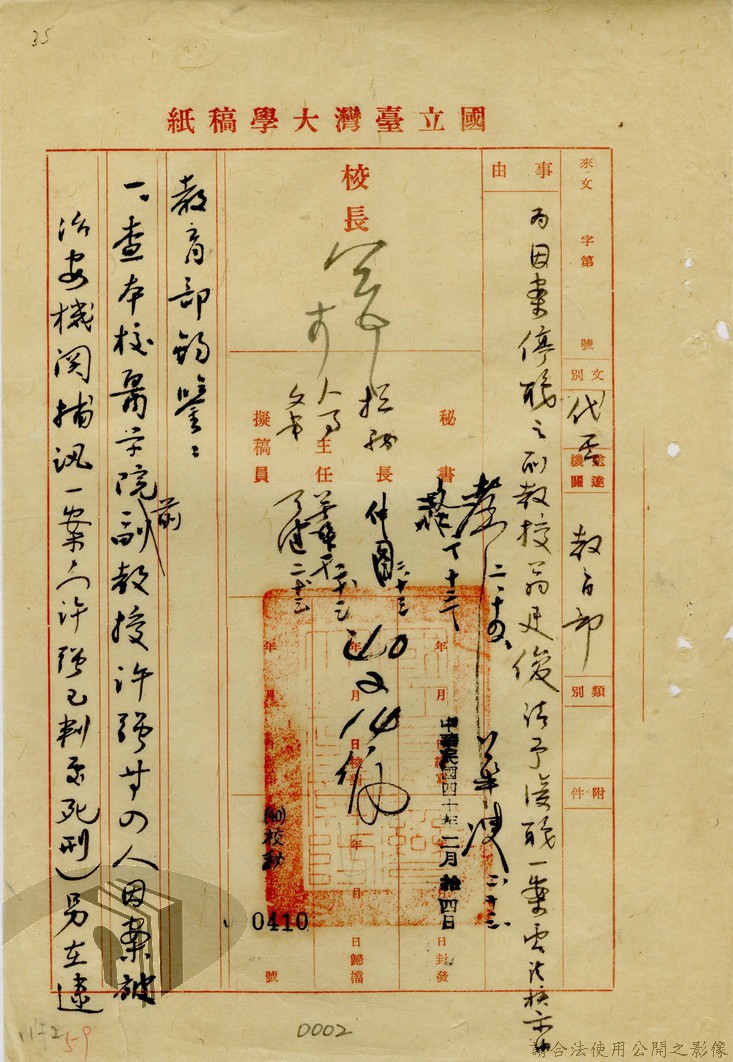 35
國立臺灣大學稿紙
來文 字第 號
文別
代電
送達機關
教育部
類別
附件
事由
為因案停職之副教授翁廷俊請予復職一案電請核示由
校長
秘書
總務長
人事
主任
文書
擬稿員
二、十四、
二、十三
年 月 日
年 月 日
年 月 日
中華民國四十年二月拾四日
日封發
日歸檔
號
(40)校秘
0410
40
2
14
教育部鈞鑒：
一、查本校醫學院前副教授許強等四人因案被
治安機關捕訊一案（內許強已判處死刑）另在逮
D002
59
請合法使用公開之影像